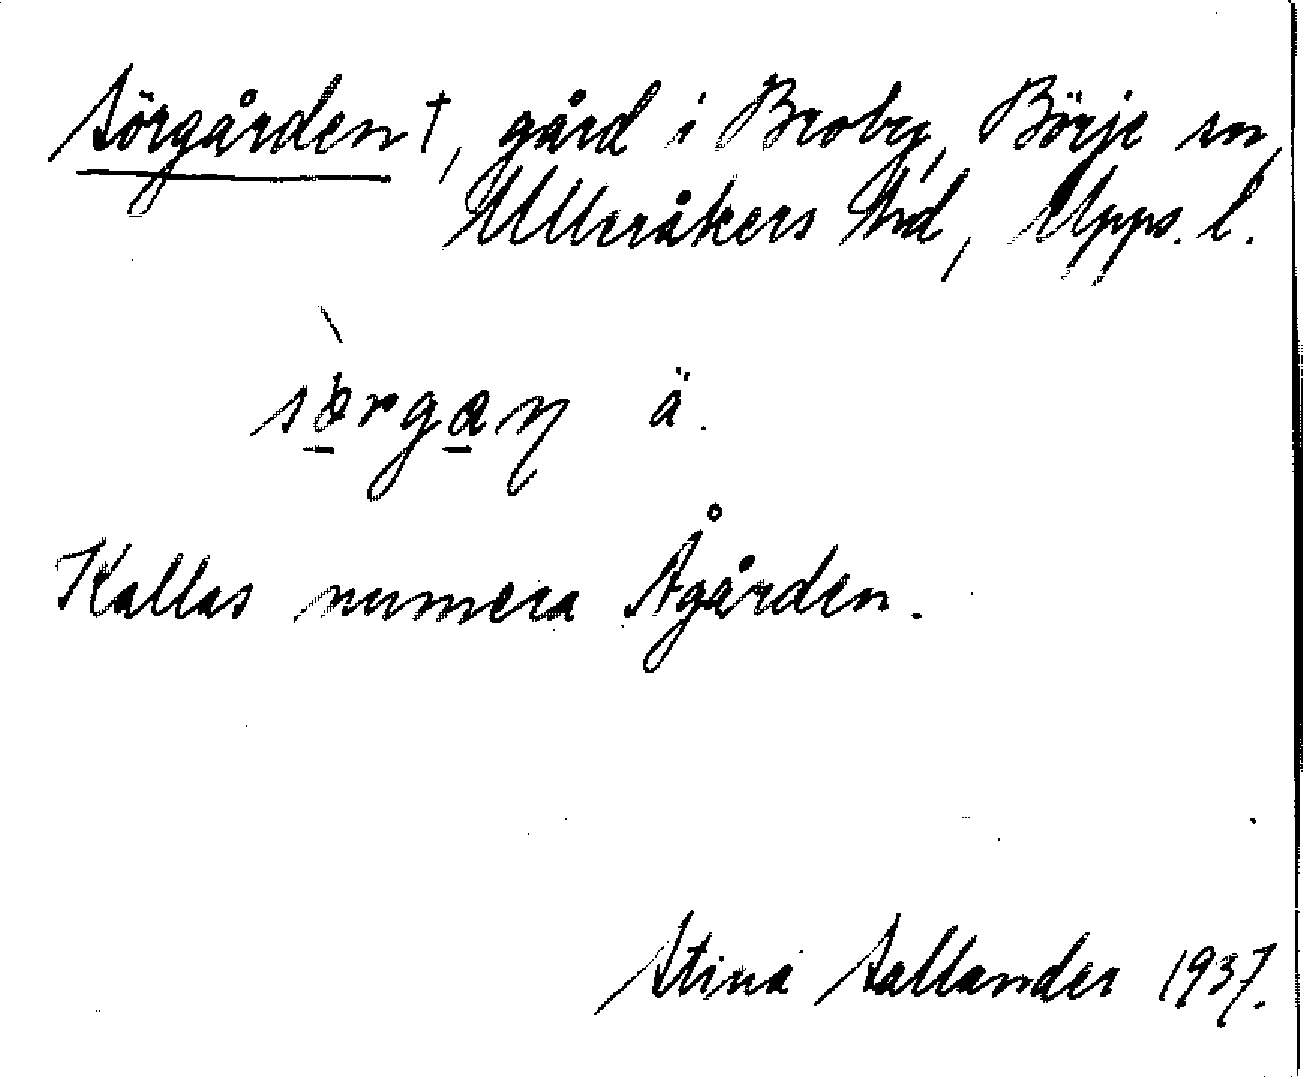 Sörgården †, gård i Broby, Börje sn,
Ulleråkers hd, Upps. l.
ä.
Kallas numera Ågården.
Stina Sallander 1937.